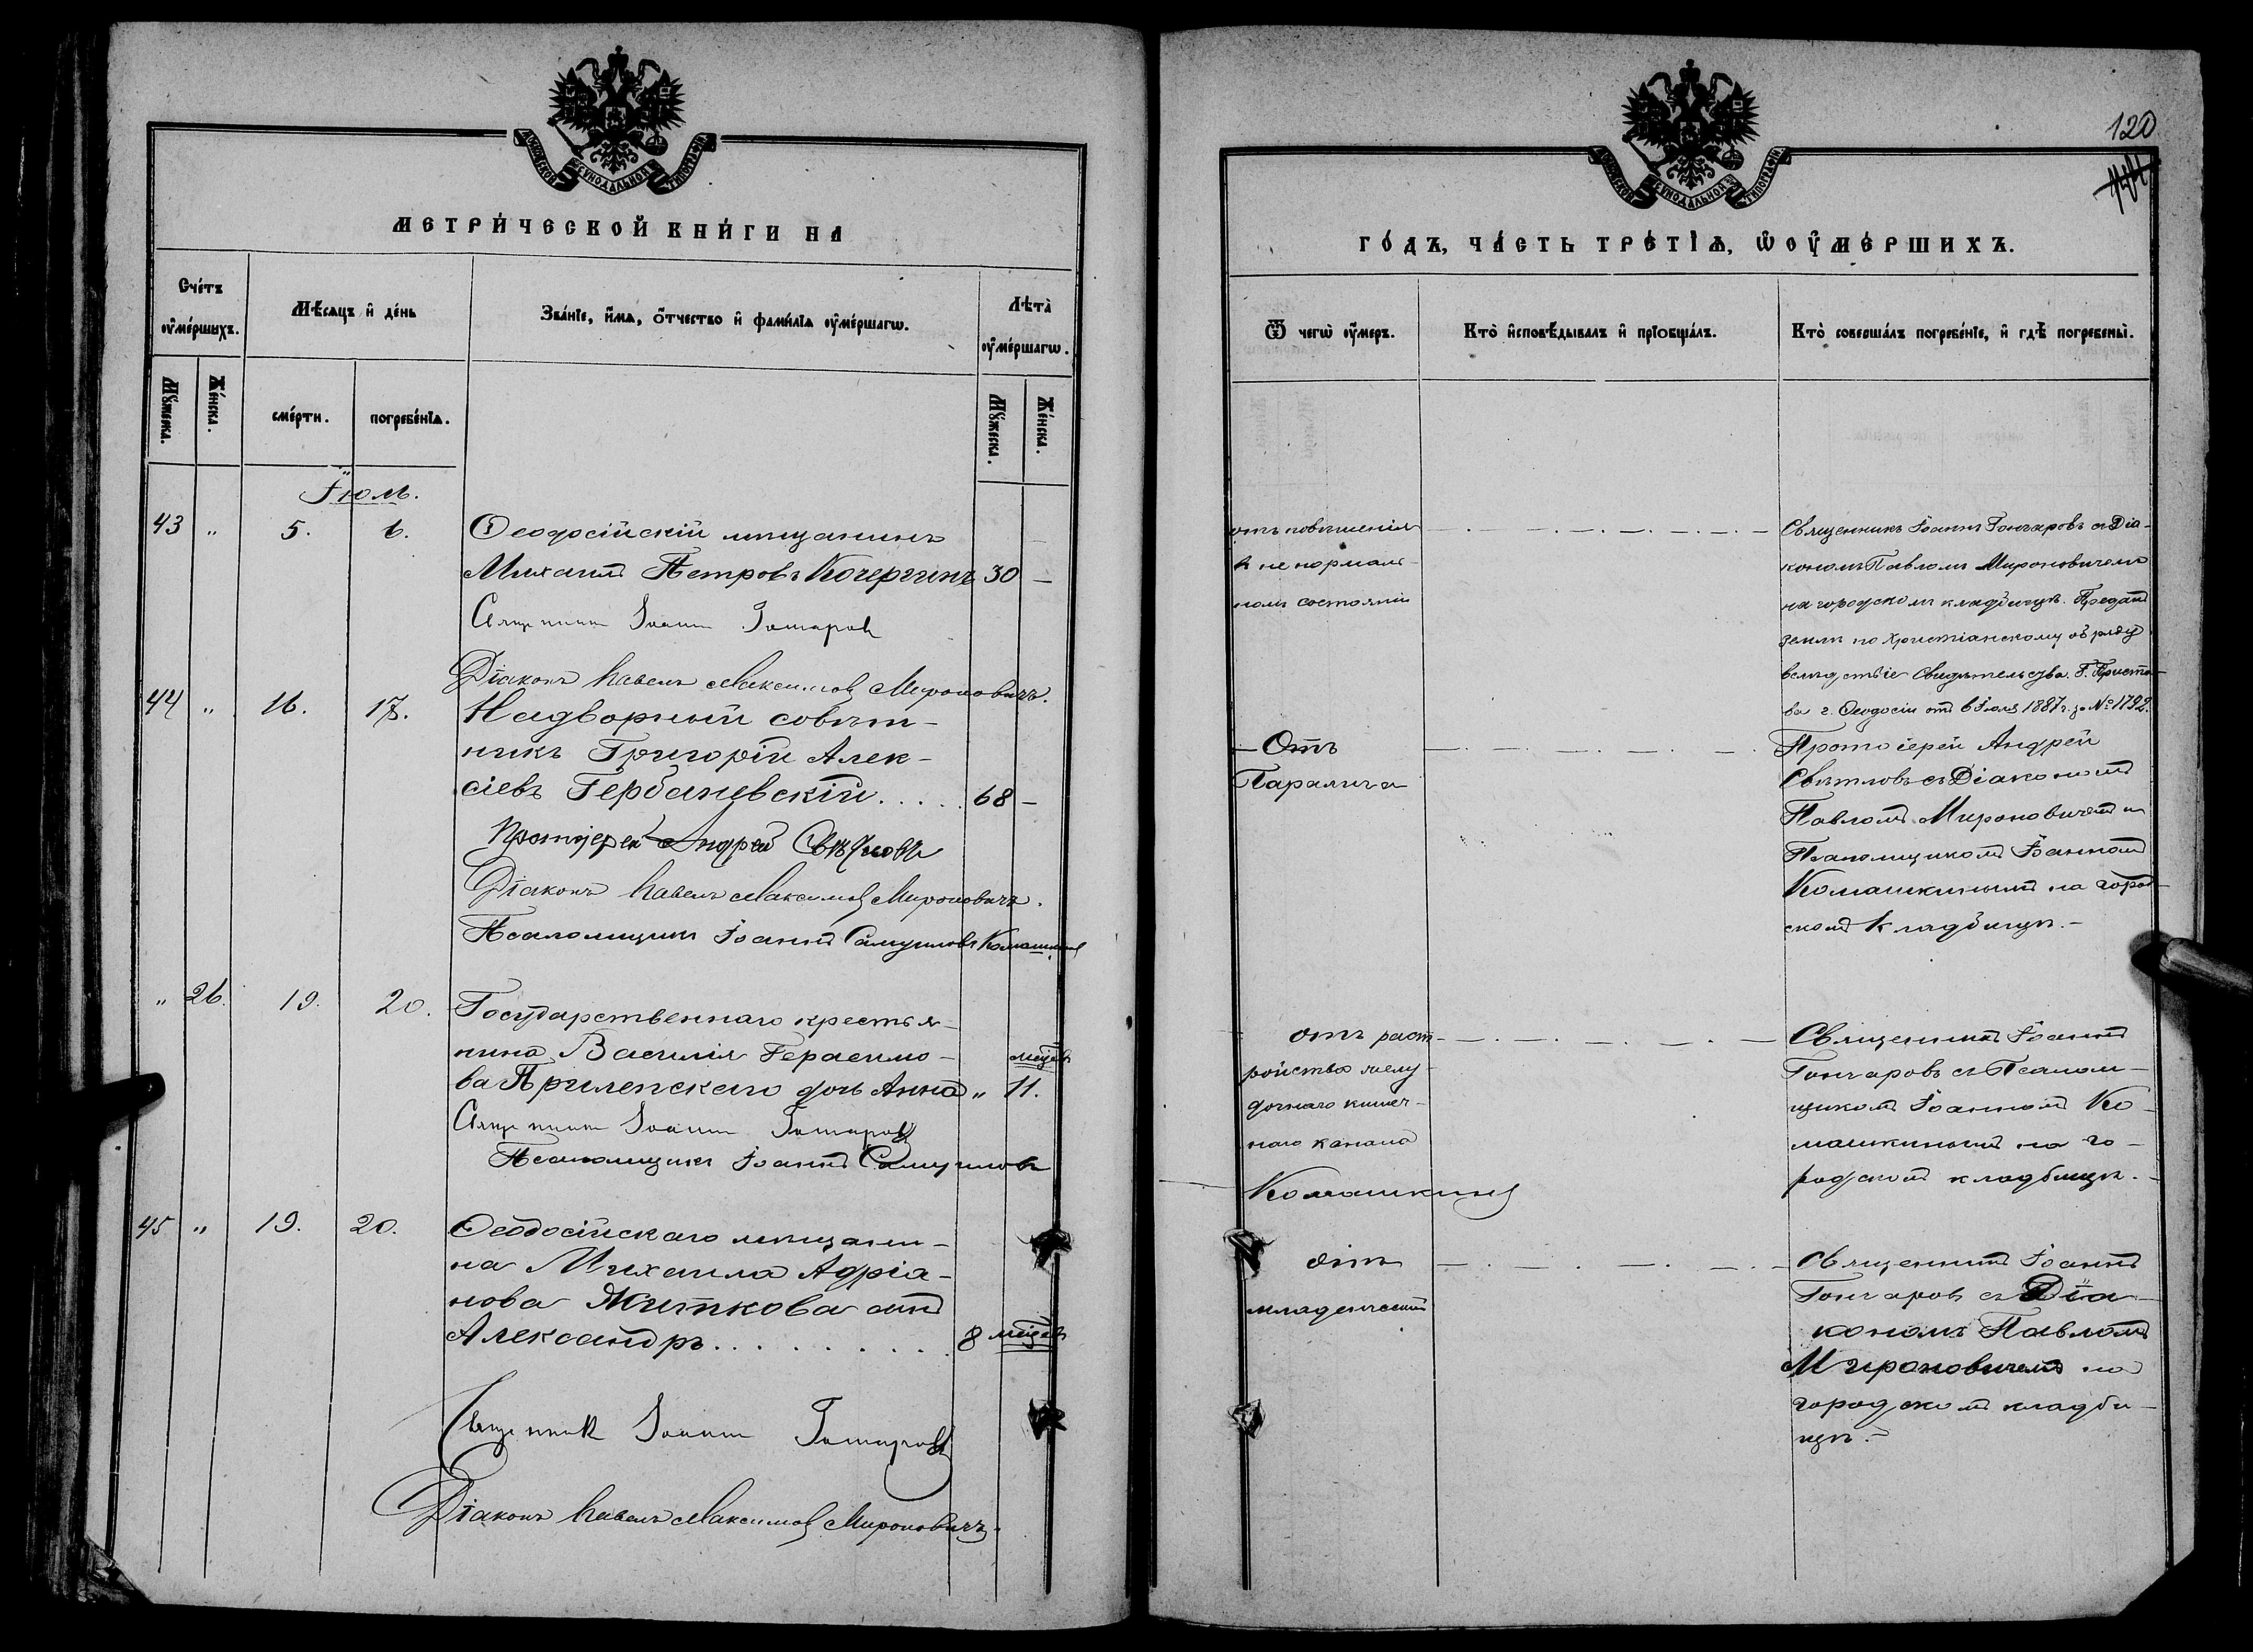 МОСКОВСКОЙ СѴНОДАЛЬНОЙ ТИПОГРАФІИ
МЕТРИ́ЧЕСКОЙ КНИ́ГИ НА
Сче́тъ ᲂу҆ме́ршихъ.
Мѣ́сяцъ и҆ де́нь
Зва́нїе, и҆́мѧ, ѻ҆́тчество и҆ фами́лїѧ ᲂу҆ме́ршагѡ.
Лѣта̀ ᲂу҆ме́ршагѡ.
Мꙋ́жеска.
Же́нска.
сме́рти.
погребе́нїѧ.
Мꙋ́жеска.
Же́нска.
Іюль.
43 " 5. 6. Ѳеодосійскій мѣщанинъ
Михаилъ Петровъ Кочергинъ 30 —
Священникъ Іоаннъ Гончаровъ
Діаконъ Павелъ Максимовъ Мироновичъ.
44 " 16. 17. Надворный совѣт-
никъ Григорій Алек-
сіевъ Гербаневскій..... 68 —
Протоіерей Андрей Свѣтловъ
Діаконъ Павелъ Максимовъ Мироновичъ.
Псаломщикъ Іоаннъ Самуиловъ Комашкинъ
" 26. 19. 20. Государственнаго крестья-
нина Василія Герасимо-
ва Прилепскаго дочь Анна " 11. мѣсяцевъ
Священникъ Іоаннъ Гончаровъ
Псаломщикъ Іоаннъ Самуиловъ
45 " 19. 20. Ѳеодосійскаго мѣщани-
на Михаила Адріа-
нова Житкова сынъ
Александръ.......... 8 мѣсяцевъ
Священникъ Іоаннъ Гончаровъ
Діаконъ Павелъ Максимовъ Мироновичъ.
120
МОСКОВСКОЙ СѴНОДАЛЬНОЙ ТИПОГРАФІИ
ГО́ДЪ, ЧА́СТЬ ТРЕ́ТЇѦ, Ѡ҆ ОУ҆МЕ́РШИХЪ.
Ѿ чегѡ̀ ᲂу҆́меръ.
Кто̀ и҆сповѣ́дывалъ и҆ прїѡбща́лъ.
Кто̀ соверша́лъ погребе́нїе, и҆ гдѣ̀ погребены̀.
отъ повѣшенія
в не нормаль-
номъ состояніи
Священникъ Іоаннъ Гончаровъ съ Діа-
кономъ Павломъ Мироновичемъ
на городскомъ кладбищѣ. Преданъ
землѣ по христіанскому обряду
вслѣдствіе свидѣтельства Г. Приста-
ва г. Ѳеодосіи отъ 6 Іюля 1887 г. за № 1792.
— Отъ
Паралича
Протоіерей Андрей
Свѣтловъ съ Діакономъ
Павломъ Мироновичемъ и
Псаломщикомъ Іоанномъ
Комашкинымъ на город-
скомъ кладбищѣ. —
отъ раст-
ройства желу-
дочнаго кишеч-
наго канала
Комашкинъ
Священникъ Іоаннъ
Гончаровъ съ Псалом-
щикомъ Іоанномъ Ко-
машкинымъ на го-
родскомъ кладбищѣ. —
отъ
младенческой
Священникъ Іоаннъ
Гончаровъ съ Діа-
кономъ Павломъ
Мироновичемъ на
городскомъ кладби-
щѣ. —